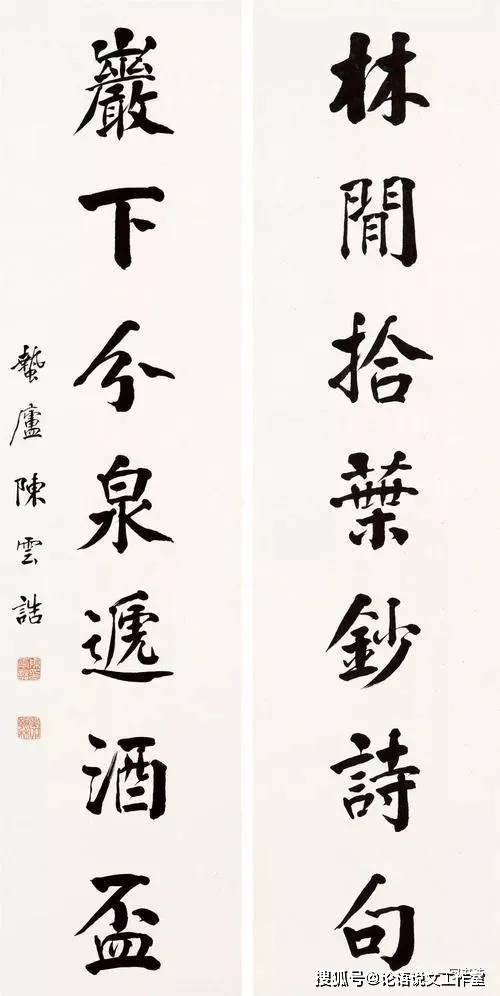 林閒拾葉鈔詩句
巖下分泉遞酒盃
蟄廬陳雲誥
搜狐号@论语说文工作室